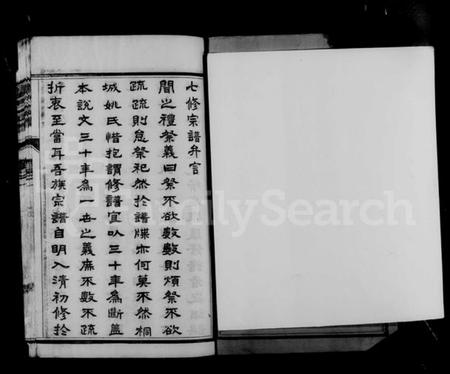 七修宗譜弁言
聞之禮祭義曰祭不欲數數則煩祭不欲
疏疏則怠祭祀然於譜牒亦何莫不然桐
城姚氏惜抱謂修譜宜以三十年為斷蓋
本說文三十年為一世之義庶不數不疏
折衷至當耳吾族宗譜自明入清初修於
FamilySearch